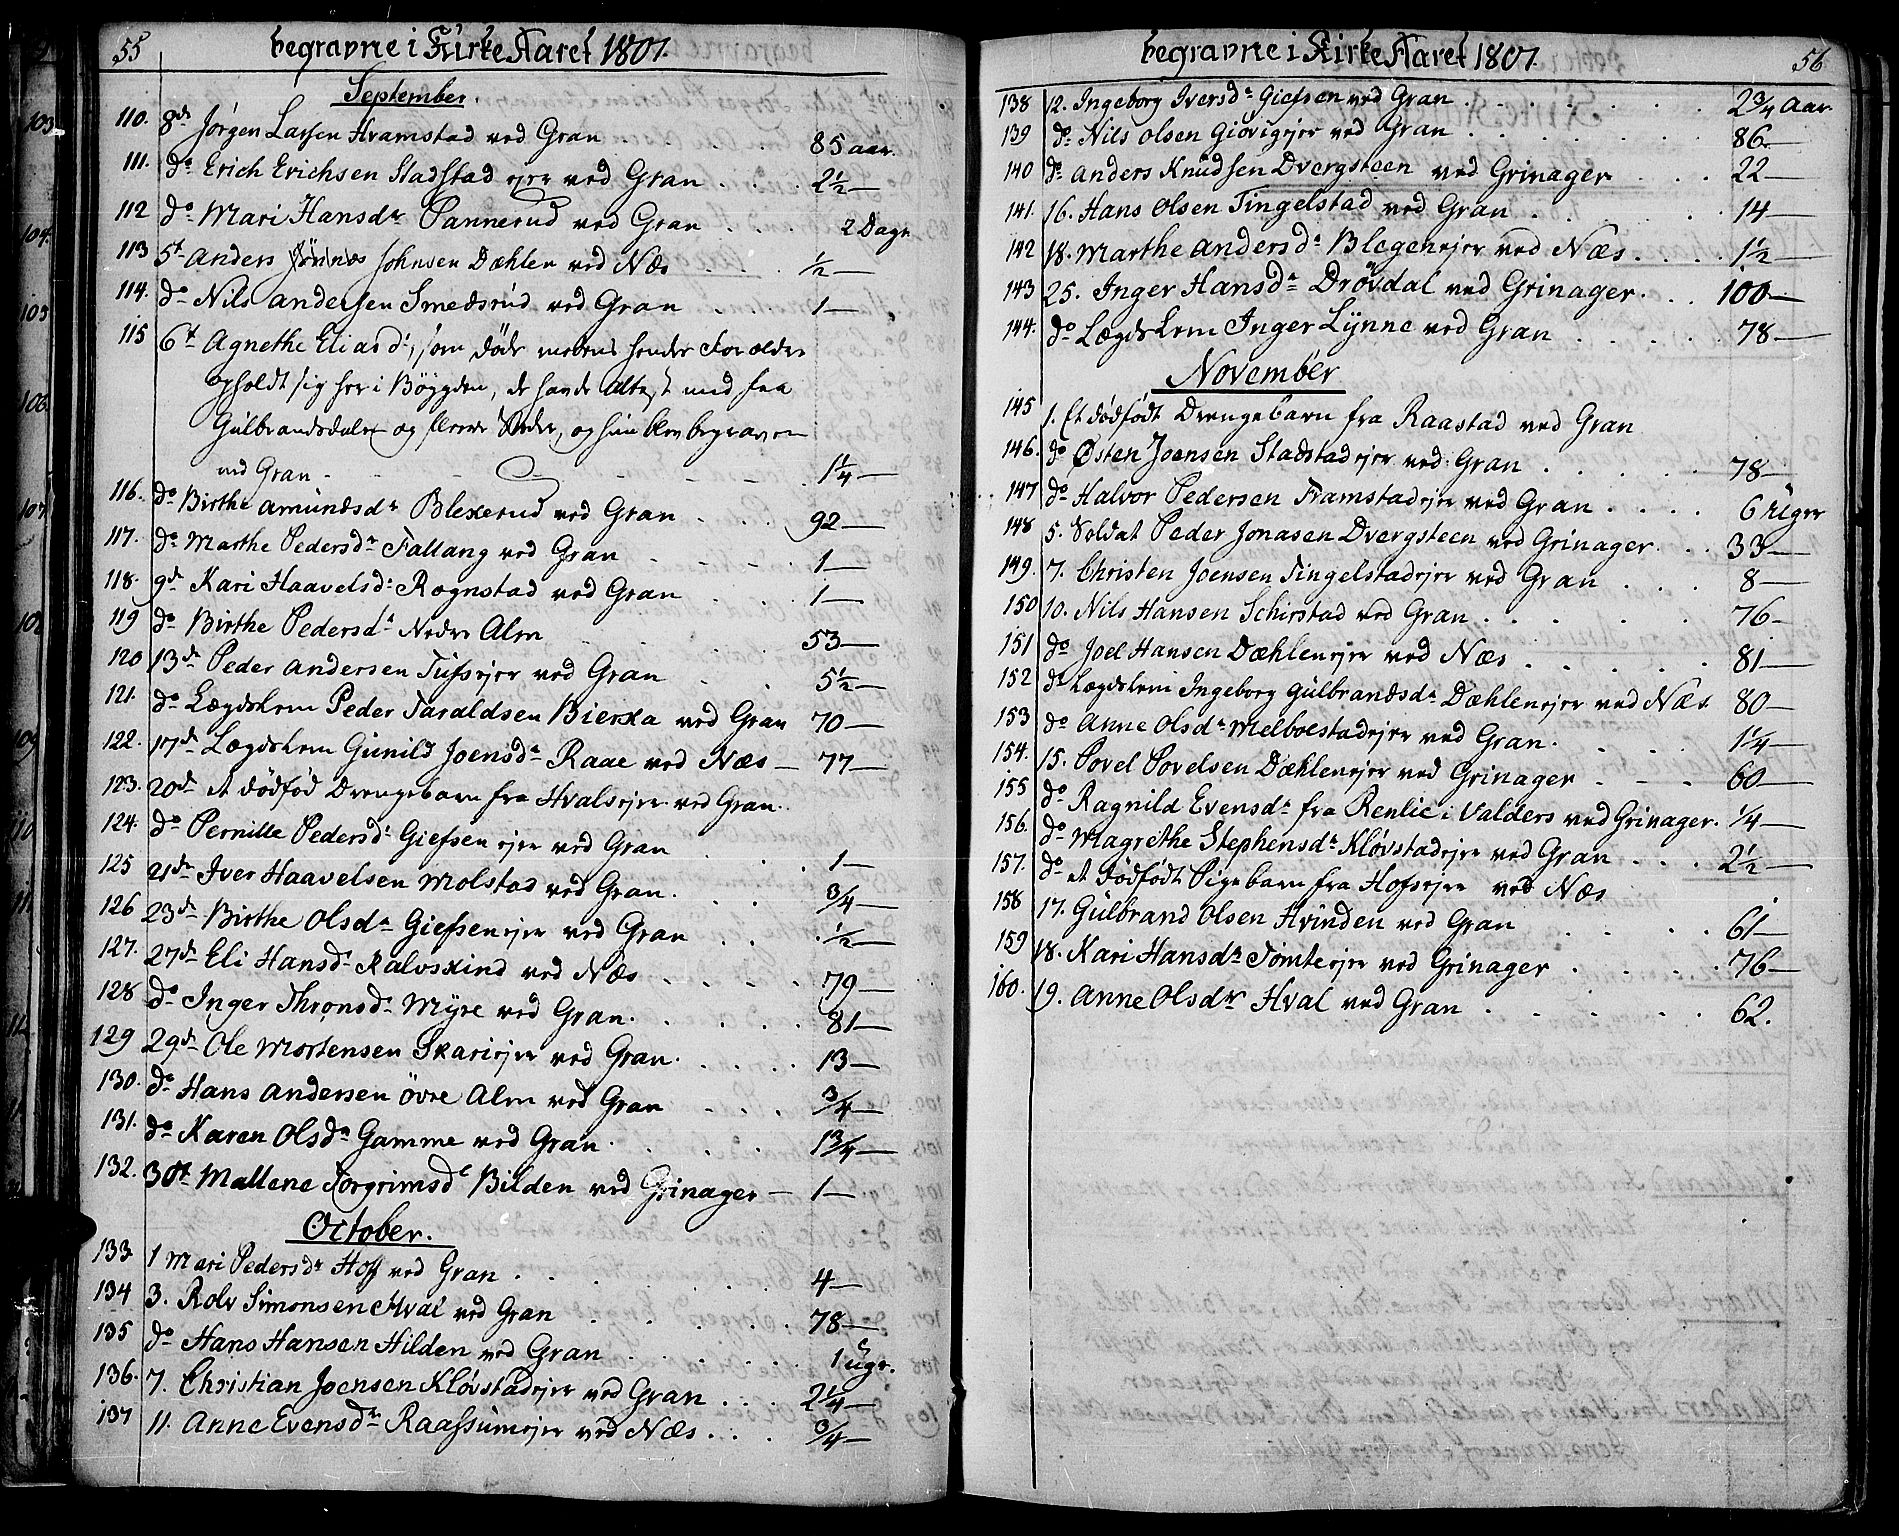 55 begravne i Kirke Aaret 1807.
September.
110. 8de Jörgen Larsen Hvamstad ved Gran . . . 85 aar.
111. do Erich Erichsen Stadstad ejer ved Gran . . . 2½ —
112 do Mari Hansdr Pannerud ved Gran . . . 2 Dage
113 5t Anders Johnsen Dæhlen ved Næs . . . ½ —
114. do Nils Andersen Smedsrud ved Gran . . . 1 —
115 6t Agnethe Eliasdr, som döde medens hendes Forældre
opholdt sig her i Böygden, de havde Attest med fra
Gulbrandsdalen og fleere Steder, og hun blev begraven
ved Gran - - - 1¼ —
116. do Birthe Amundsdr Blexerud ved Gran . . . 92 —
117. do Marthe Pedersdr Fallang ved Gran - - - 1 —
118. 9de Kari Haavelsdr Rognstad ved Gran . . . 1 —
119 do Birthe Pedersdr Nedre Alm . . . 53 —
120 13de Peder Andersen Tufsejer ved Gran . . . 5½ —
121. do Lægdslem Peder Taraldsen Bierxa ved Gran 70 —
122. 17de Lægdslem Gunild Joensdr Raae ved Næs — 77 —
123. 20de et dödfód Drengebarn fra Hvalsejer ved Gran.
124. do Pernille Pedersdr Giefsen ejer ved Gran . . . 1 —
125 21de Iver Haavelsen Molstad ved Gran. . . . ¾ —
126 23de Birthe Olsdr Giefsenejer ved Gran . . . ½ —
127. 27de Eli Hansdr Kalvskind ved Næs . . . 79 —
128 do Inger Thronsdr Myre ved Gran. . . . 81 —
129 29de Ole Mortensen Skariejer ved Gran. . . . 13 —
130. do Hans Andersen övre Alm ved Gran . . . ¾ —
131. do Karen Olsdr Gamme ved Gran. . . . 1¾ —
132. 30t Mallene Torgrimsdr Bilden ved Grinager — 1 —
October.
133 1 Mari Pedersdr Hoff ved Gran . . . 4 —
134 3. Rolv Simonsen Hval ved Gran . . . 78 —
135 do Hans Hansen Hilden ved Gran . . . 1 uge.
136. 7. Christian Joensen Klóvstadejer ved Gran . . . 2¼ —
137 11. Anne Evensdr Raassumejer ved Næs . . . ¾ —
begravne i Kirke Aaret 1807. 56
138 12. Ingeborg Iversdr Giefsen ved Gran . . . 2¾ Aar.
139 do Nils Olsen Giövigejer ved Gran . . . 86. —
140 do Anders Knudsen Dvergsteen ved Grinager . . . 22 —
141. 16. Hans Olsen Tingelstad ved Gran . . . 14 —
142 18. Marthe Andersdr Blegenejer ved Næs . . . 1½ —
143 25. Inger Hansdr Dróvdal ved Grinager . . . 100 —
144. do Lægdslem Inger Lynne ved Gran . . . 78 —
November
145 1. Et dödfódt Drengebarn fra Raastad ved Gran
146. do Østen Joensen Stadstadejer ved Gran . . . 78 —
147 do Halvor Pedersen Framstadejer ved Gran . . . 6 Uger
148 5. Soldat Peder Jonasen Dvergsteen ved Grinager . . . 33 —
149. 7. Christen Joensen Tingelstadejer ved Gran . . . 8 —
150 10. Nils Hansen Schirstad ved Gran . . . 76 —
151 do Joel Hansen Dæhlenejer ved Næs . . . 81 —
152 do Lægdslem Ingeborg Gulbrandsdr Dæhlenejer ved Næs. 80 —
153 do Anne Olsdr Melboestadejer ved Gran. . . . 1¼ —
154. 15. Povel Povelsen Dæhlenejer ved Grinager . . . 60 —
155 do Ragnild Evensdr fra Renlie i Valders ved Grinager. ¼ —
156. do Magrethe Stephensdr Klóvstadejer ved Gran . . . 2½ —
157. do et dödfódt Pigebarn fra Hofsejer ved Næs
158 17. Gulbrand Olsen Hvinden ved Gran . . . 61 —
159 18. Kari Hansdr Tomteejer ved Grinager . . . 76 —
160. 19. Anne Olsdr Hval ved Gran . . . 62.